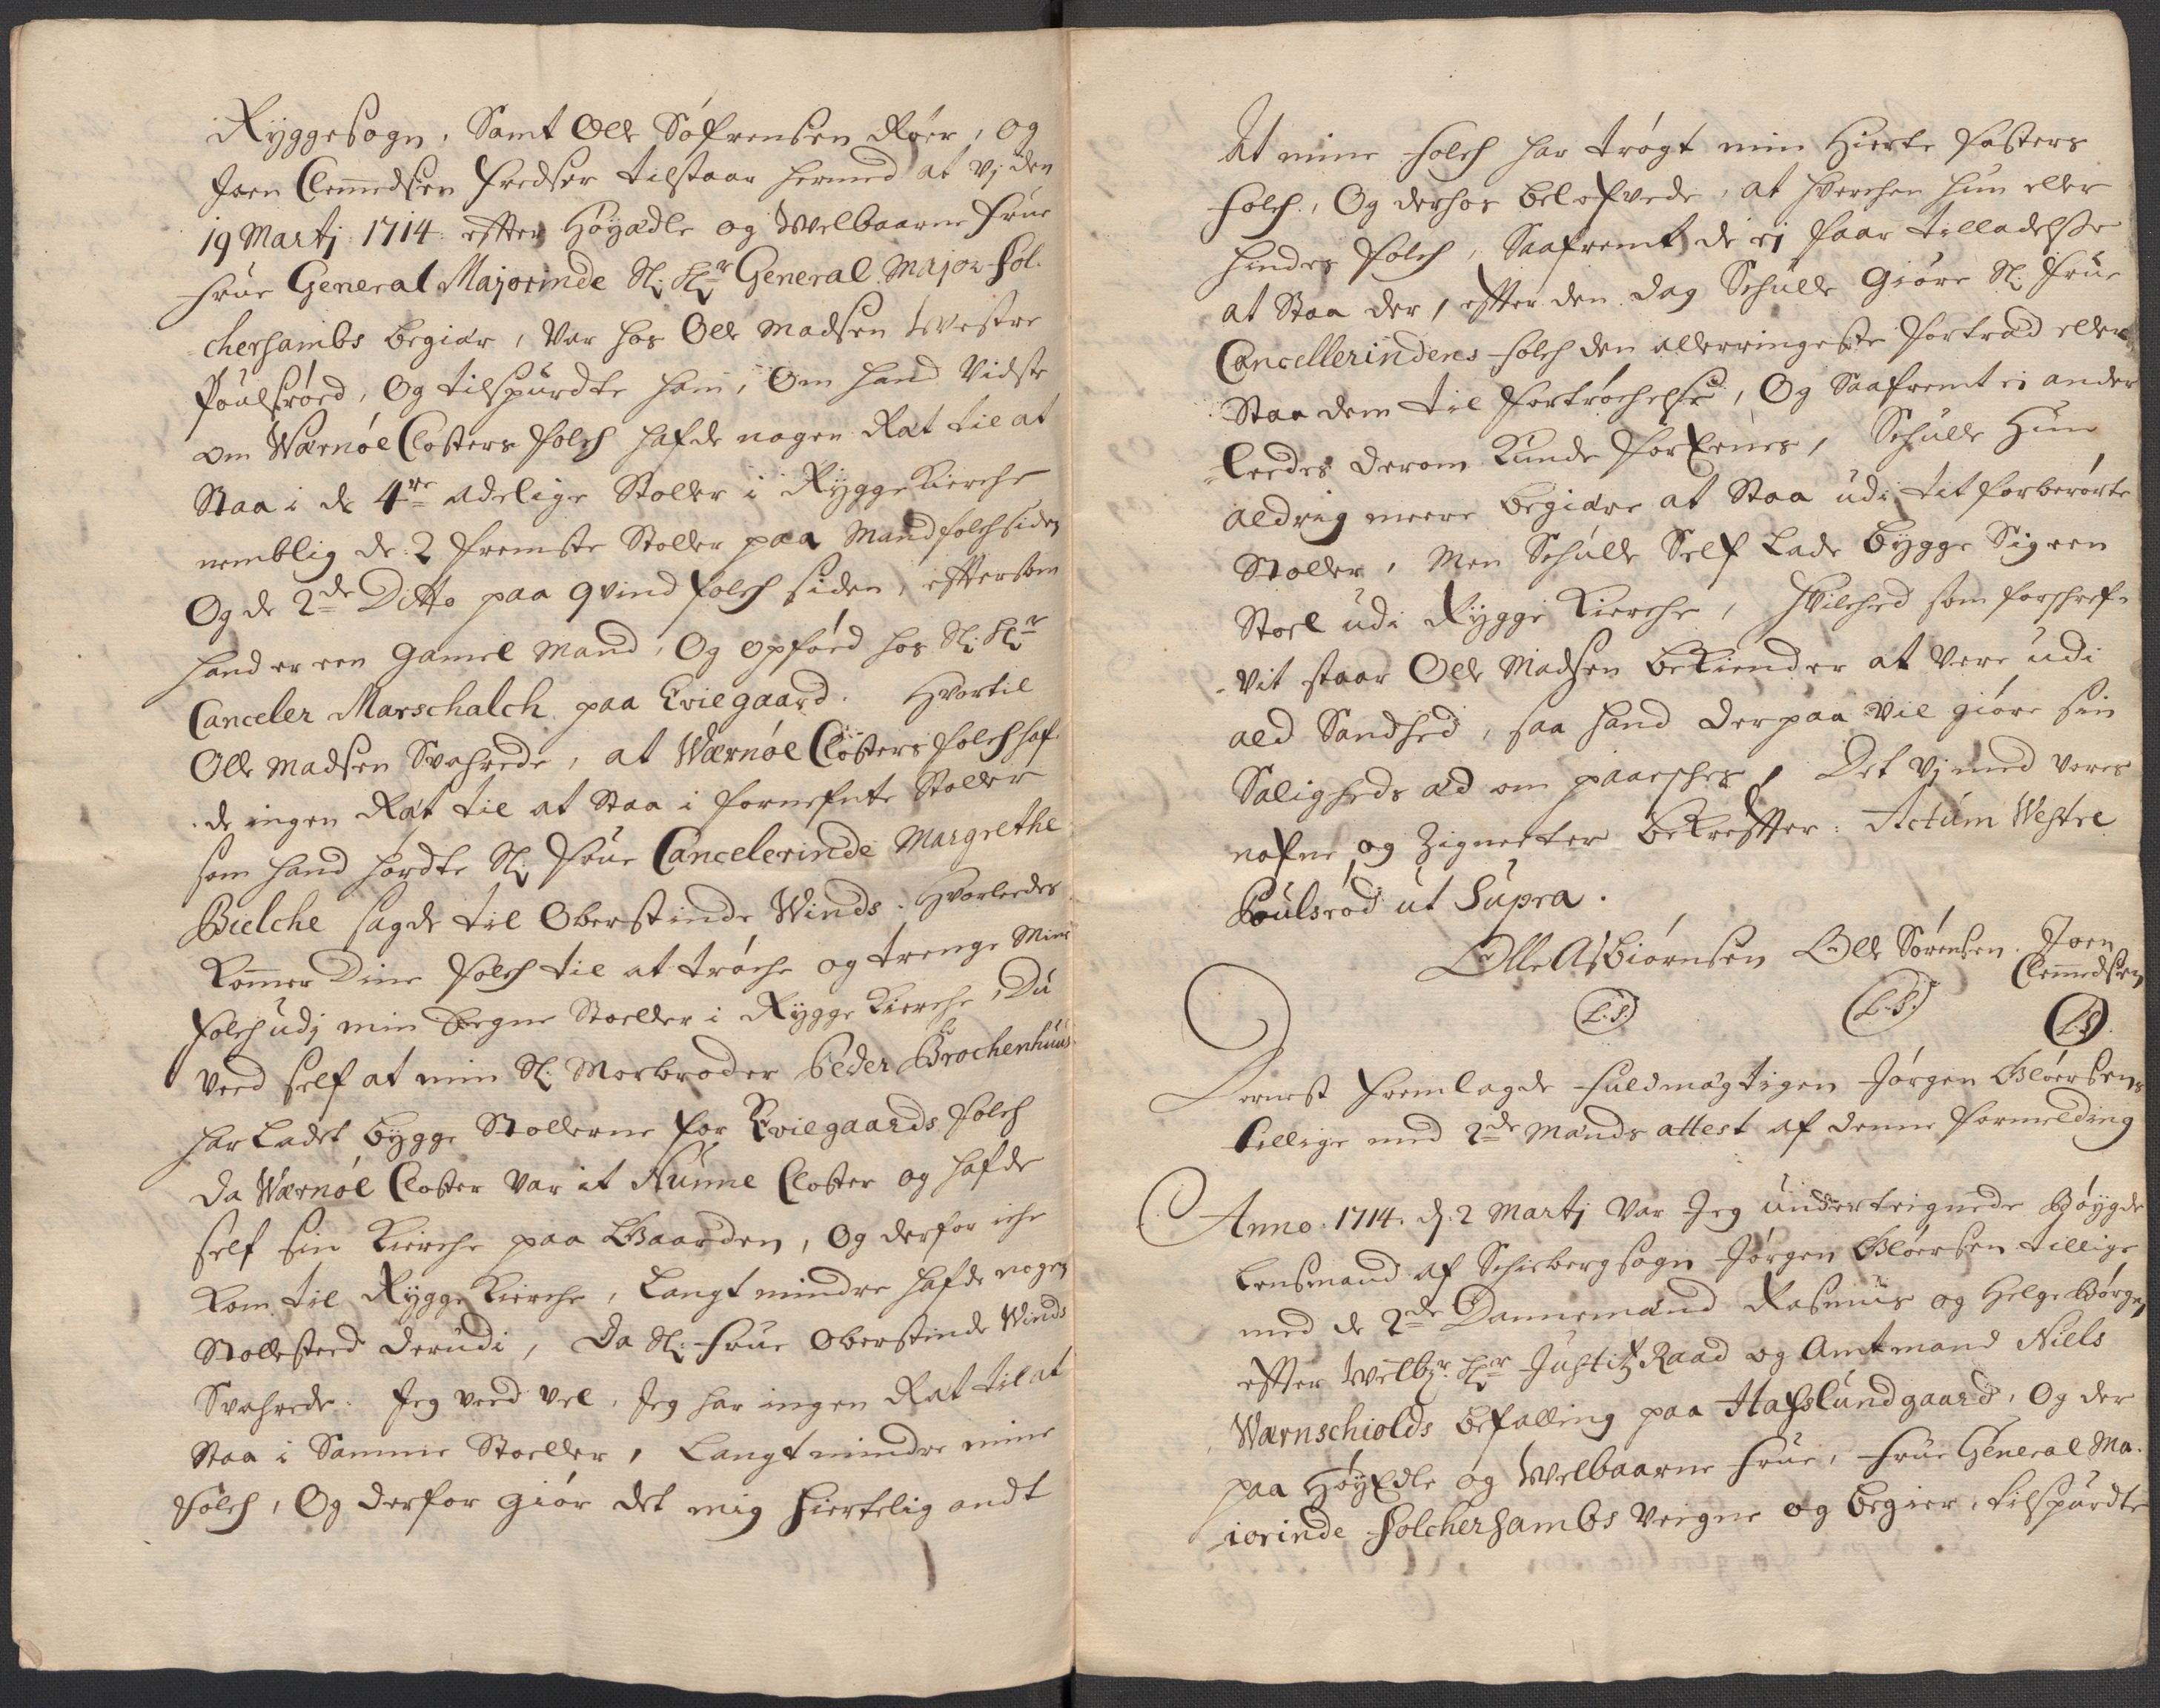 Ryggesogn, Samt Olle Søfrensen Røer, og
Joen Clemedsen Fredser tilstaar hermed at vj den
19 Martj 1714 efter Høyædle og Welbaarne Frue
Frue General Majorinde Sl: Hr General Major Fol-
-chersambs begiær, var hos Olle Madsen Westre
Poulsrøed, Og tilspurdte ham, Om hand vidste
om Wærnøe Closters folch hafde nogen Ræt til at
Staa i de 4re adelige Stoller i Rygge Kierche
nemblig de 2 fremste Stoller paa Mandfolchsiden
Og de 2de Ditto paa qvindfolch siden, eftersom
hand er een gamel Mand, Og opføed hos Sl: Hr
Canceler Marschalch paa Evie gaard. Hvortil
Olle Madsen Svahrede, at Wærnøe Closters folch haf-
-de ingen Ræt til at Staa i fornefnte Stoller
som hand hørdte Sl: Frue Cancelerinde Margrethe
Bielche sagde til Oberstinde Winds. Hvorleedes
Kommer Dine folch til at trøche og trenge Mine
folch udj min Eegne Stoeller i Rygge Kierche, Du
veed self at min Sl: Morbroder Peder Brochenhuus
har Ladet bygge Stollerne for Evie gaards folch
da Wærnøe Closter var et Nunne Closter og hafde
self sin Kierche paa Gaarden, Og derfor iche
Kom til Rygge Kierche, Langt mindre hafde nogen
Stollested derudi, Da Sl: Frue Oberstinde Winds
Svahrede. Jeg veed vel, Jeg har ingen Ræt til at
staa i Samme Stoeller, Langt mindre mine
folch, Og derfor giør det mig hiertelig ondt
At mine folch har trøgt min Hierte Søsters
folch, Og derhos belofvede, at hverchen hun eller
hendes folch, Saafremt de ej faar tilladelse
at Staa der, efter den dag Schulle Giøre Sl: Frue
Cancellerindens folch den allerringeste fortræd eller
Staa dem til fortrøchelse, Og Saafremt ej ander
-leedes derom Kunde forEenes, Schulle Hun
aldrig meere begiære at Staa udi tit forberørte
Stoller, Men Schulle Self Lade bygge Sig een
Stoel udi Rygge Kierche, Hvilched som forschref-
-vit staar Olle Madsen beKiender at vere udi
ald Sandhed, saa hand derpaa vil giøre sin
Saligheds æd om paaesches, Det vj med vores
nafne og Zigneeter beKrefter. Actum Westre
Poulsrød ut Supra.
Olle Asbiørnsen Olle Sørensen. Joen
Clemedsen
(L.S.) (L.S.) (L.S.)
Dernest fremlagde fuldmægtigen Jørgen Gloersens
tillige med 2de Mænds attest af denne formelding
Anno 1714. d. 2 Martj var Jeg underteignede Bøygde
Lensmand af Schiebergsogn Jørgen Gloersen tillige
med de 2de Dannemænd Rasmus og Helge Børge,
efter Welbr: Hr Justitz Raad og Amtmand Niels
Wærnschiolds befalling paa Hafslundgaard, Og der
paa HøyEdle og Welbaarne Frue, Frue General Ma-
iorinde Folchersambs veigne og begier, tilspurdte